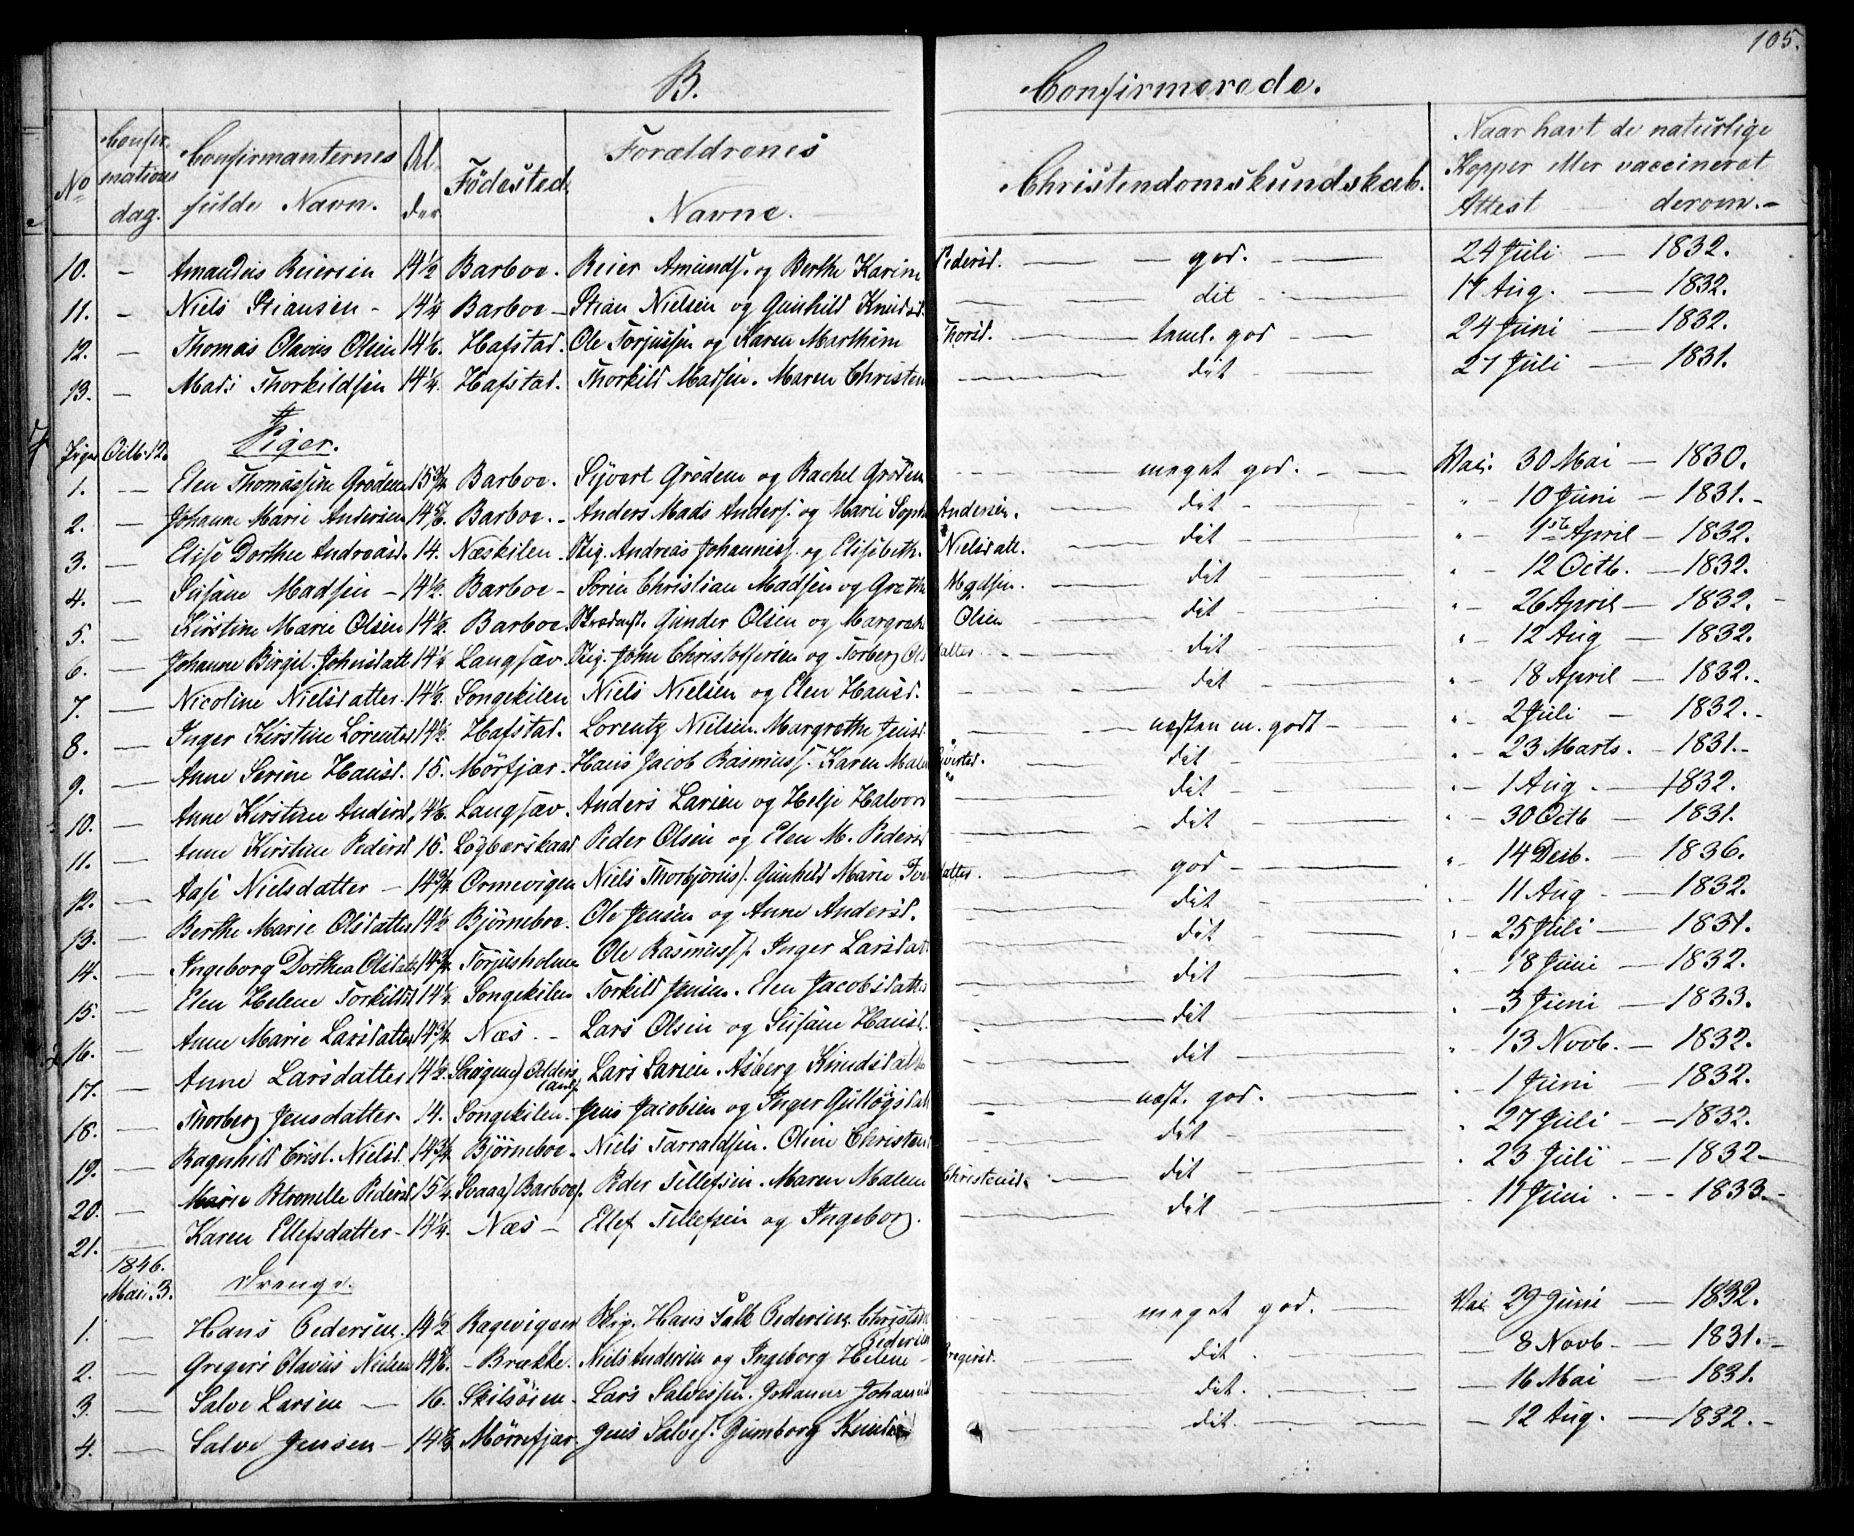 105.
B. Confirmerede.
No Confirmations dag. Confirmanternes fulde Navn. Alder Födested. Forældrenes Navne. Christendomskundskab. Naar havt de naturlige Kopper eller vaccineret Attest derom.
10. - Amandus Reiersen 14½ Barboe. Reier Amunds. og Berthe Karine Pedersd. god. 24 Juli 1832.
11. - Niels Stiansen - 14¼ Barboe - Stian Nielsen og Gunhild Knudsd. dit 17 Aug. 1832.
12. - Thomas Olavus Olsen 14⅙ Hafstad. Ole Torjussen og Karen Marthine Thorsd. taml. god 24 Juni 1832.
13. - Mads Thorkildsen 14¼ Hafstad. Thorkild Madsen. Maren Christen dit 27 Juli 1831.
Octb. 12. Piger.
1. - Elen Thomassine Grødem 15¾ Barboe. Sijvert Grødem og Rachel Grødem meget god. Vac. 30 Mai - 1830.
2. - Johanne Marie Andersen 14 Barboe. - Anders Mads Anders. og Marie Sophie Andersen. dit 10 Juni - 1831.
3. - Elise Dorthea Andreasd. 14. Næskilen - Skig. Andreas Johanness. og Elisebeth. Nielsdatt. dit 1ste April - 1832.
4. - Susane Madsen - 14½. Barboe - Sören Christian Madsen og Grethe Madsen. dit 12 Octb. - 1832.
5. - Kirstine Marie Olsen 14½ Barboe. Gunder Olsen og Margrethe Olsen dit 26 April - 1832.
6. - Johanne Birgit. Johnsdatt 14¼ Langsæv. Skig. John Christoffersen og Torberg Olsdatter. dit 12 Aug - 1832.
7. - Nicoline Nielsdatter. 14½. Songekilen Niels Nielsen og Elen Hansd. dit 18 April - 1832.
8. - Inger Kirstine Lorentzd 14½ Hafstad. Lorentz Nielsen. Margrethe Jensd. næsten m. godt 2 Juli - 1832.
9. - Anne Serine Hansd. 15. Mörfjær. Hans Jacob Rasmuss. Karen Malene Sivertsd. dit 23 Marts. - 1831.
10. - Anne Kirstine Andersd. 14⅙ Langsæv. Anders Larsen og Helje Halvors dit 1 Aug. - 1832.
11. - Anne Kirstine Pedersd 15. Lögbærskaad Peder Olsen og Elen M. Pedersd dit 30 Octb - 1831.
12. - Aase Nielsdatter - 14¾. Ormevigen Niels Thorbjörns. Gunhild Marie Tordatter. god - 14 Desb. - 1836.
13. - Berthe Marie Olsdatter 14½ Björneboe. Ole Jensen og Anne Andersd. dit 11 Aug - 1832.
14. - Ingeborg Dorthea Olsdatt. 14¾ Torjusholmen Ole Rasmuss. Inger Larsdatt dit 25 Juli - 1831.
15. - Elen Helene Torkildsd 14½. Songekilen Torkild Jensen. Elen Jacobsdatter dit 18 Juni - 1832.
16. - Anne Marie Larsdatter 14¾ Næs. - Lars Olsen og Susane Hansd. dit 3 Juni - 1833.
17. - Anne Larsdatter 14½. Lars Larsen. Asberg Knudsdatter dit 13 Novb. - 1832.
18. - Thorberg Jensdatter. 14. Songekilen. Jens Jacobsen og Inger Gullögsdatt næst. god. 1 Juni - 1832.
19. - Ragnhild Crist. Nielsd. 14¾ Björneboe - Niels Tarraldsen. Oline Christen dit 27 Juli - 1832.
20. - Marie Petronelle Pedersd 15¼ Svaaa) Barboe. Peder Tellefsen. Maren Malene Christensd. dit 23 Juli - 1832 -
21. - Karen Ellefsdatter - 14¼. Næs - Ellef Tellefsen og Ingeborg. dit 11 Juni. - 1833.
1846.
Mai. 3. Drenge.
1. - Hans Pedersen. 14½ Ragevigen Skip. Hans Falk Pedersen. Christine Pedersen meget god. Vac. 29 Juni - 1832.
2. - Gregers Olavus Nielsen - Brække. Niels Andersen og Ingeborg Helene Gregersd. dit 8 Novb - 1831.
3. - Salve Larsen - 16. Skilsöien. Lars Salvessen. Johanne Johannsd dit. 16 Mai - 1831.
4. - Salve Jensen - 14 Mörrefjær. Jens Salves. Gumborg Knudsd dit. - 12 Aug. - 1832.